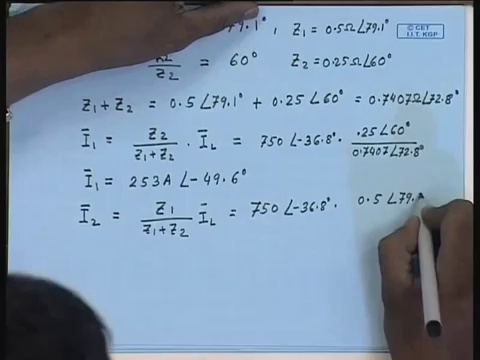 79.1° , Z₁ = 0.5Ω∠79.1°
© CET
I.I.T. KGP
Z₂ = 60° Z₂ = 0.25Ω∠60°
Z₁+Z₂ = 0.5∠79.1° + 0.25∠60° = 0.7407Ω∠72.8°
Ī₁ = Z₂/(Z₁+Z₂) · Ī_L = 750∠-36.8° · .25∠60°/0.7407∠72.8°
Ī₁ = 253A∠-49.6°
Ī₂ = Z₁/(Z₁+Z₂) Ī_L = 750∠-36.8° · 0.5∠79.